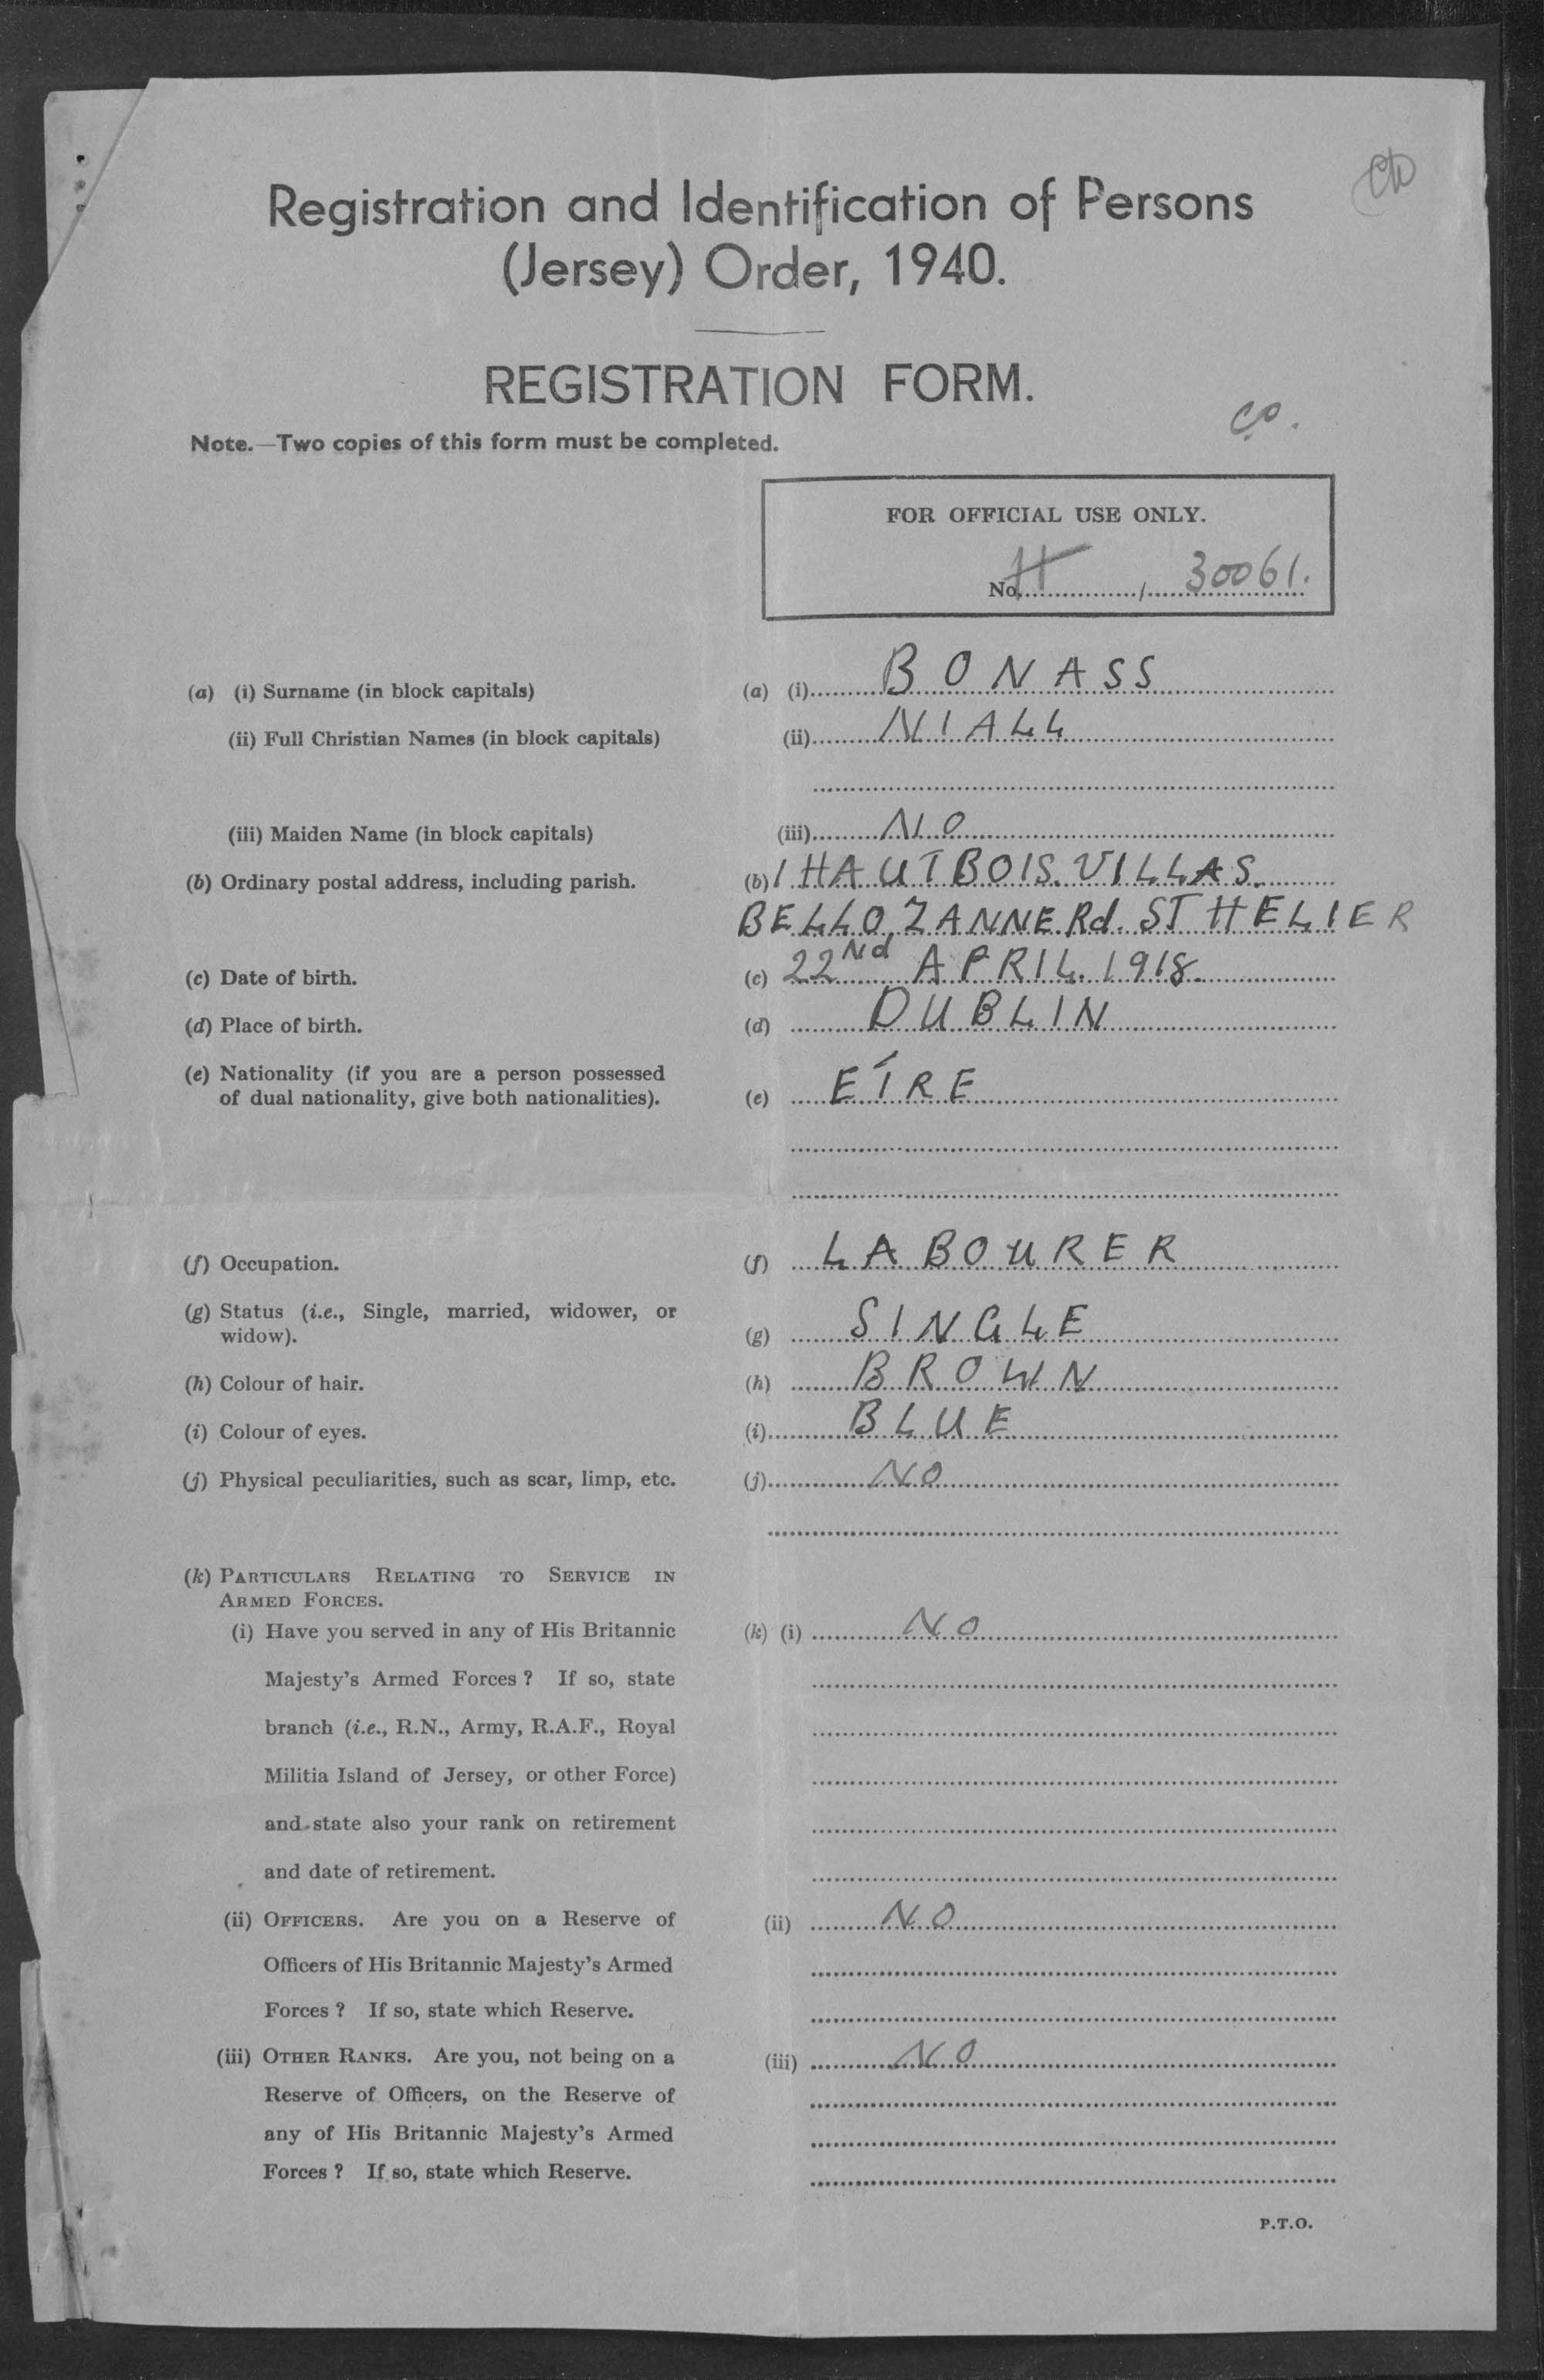 Registration and Identification of Persons
(Jersey) Order, 1940.
REGISTRATION FORM.
Co.
Note.—Two copies of this form must be completed.
FOR OFFICIAL USE ONLY.
No. H / 30061.
(a) (i) Surname (in block capitals) (a) (i) BONASS
(ii) Full Christian Names (in block capitals) (ii) NIALL
(iii) Maiden Name (in block capitals) (iii) NO
(b) Ordinary postal address, including parish. (b) 1 HAUTBOIS. VILLAS.
BELLOZANNE Rd. ST HELIER
(c) Date of birth. (c) 22Nd APRIL. 1918.
(d) Place of birth. (d) DUBLIN
(e) Nationality (if you are a person possessed
of dual nationality, give both nationalities). (e) EÍRE
(f) Occupation. (f) LABOURER
(g) Status (i.e., Single, married, widower, or
widow). (g) SINGLE
(h) Colour of hair. (h) BROWN
(i) Colour of eyes. (i) BLUE
(j) Physical peculiarities, such as scar, limp, etc. (j) NO
(k) PARTICULARS RELATING TO SERVICE IN
ARMED FORCES.
(i) Have you served in any of His Britannic (k) (i) NO
Majesty's Armed Forces ? If so, state
branch (i.e., R.N., Army, R.A.F., Royal
Militia Island of Jersey, or other Force)
and state also your rank on retirement
and date of retirement.
(ii) OFFICERS. Are you on a Reserve of (ii) NO
Officers of His Britannic Majesty's Armed
Forces ? If so, state which Reserve.
(iii) OTHER RANKS. Are you, not being on a (iii) NO
Reserve of Officers, on the Reserve of
any of His Britannic Majesty's Armed
Forces ? If so, state which Reserve.
P.T.O.